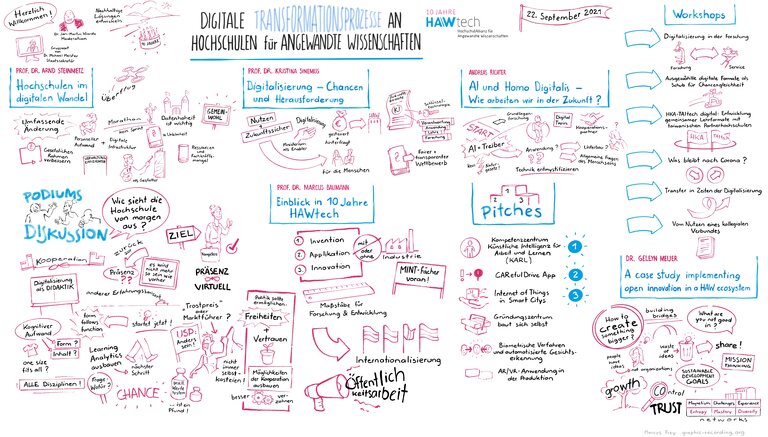 Herzlich Willkommen!
Nachhaltige Lösungen
10 JAHRE
DIGITALE TRANSFORMATIONSPROZESSE AN
HOCHSCHULEN für ANGEWANDTE WISSENSCHAFTEN
10 JAHRE
HAWtech
HochschulAllianz für
Angewandte Wissenschaften
22. September 2021
PROF. DR. ARND STEINMETZ
Hochschulen im
digitalen Wandel
Überflug
Umfassende
Änderung
Marathon
Personeller
Aufwand
Digitale
Infrastruktur
Datenhoheit
ist wichtig
GEMEIN-
WOHL
Gesetzlichen
Rahmen
verbessern
als Gestalter
PROF. DR. KRISTINA SINEMUS
Digitalisierung – Chancen
und Herausforderung
Nutzen
+
Zukunftssicher
Digitalisierung
Ministerium als Enabler
gesteuert
&
hinterfragt
für die Menschen
KI
Verantwortung
Fairer +
transparenter
Wettbewerb
ANDREAS RICHTER
AI und Homo Digitalis –
Wie arbeiten wir in der Zukunft?
START
AI-Treiber
Grundlagen-
forschung
Anwendung
??
Digital
Twins
Kooperations-
partner
Lieferbar?
Allgemeine Fragen
des Menschseins
Technik entmystifizieren
Workshops
Digitalisierung in der Forschung
Forschung
Service
Ausgewählte digitale Formate als
Schub für Chancengleichheit
HKA-TAItech digital: Entwicklung
gemeinsamer Lernformate mit
taiwanischen Partnerhochschulen
HKA
TAI
Was bleibt nach Corona?
Transfer in Zeiten der Digitalisierung
Vom Nutzen eines kollegialen
Verbundes
PODIUMS
DISKUSSION
Wie sieht die
Hochschule
von morgen
aus?
ZIEL
Kompass
Kooperation
zurück zur
Präsenz
??
es wird
nicht mehr
so sein wie
vorher
PRÄSENZ
VIRTUELL
Digitalisierung
als DIDAKTIK
anderer Erfahrungshorizont
Kognitiver
Aufwand
form
follows
function
startet jetzt!
Trostpreis
oder
Marktführer?
Form?
Inhalt?
one size
fits all?
Learning
Analytics
ausbauen
nächster
Schritt
USP:
Anders
sein!
nicht
immer
selbst
kasteien!
ALLE Disziplinen!
CHANCE
... ist ein
Pfund!
Politik sollte
ermöglichen:
Freiheiten
+
Vertrauen
Möglichkeiten
der Kooperation
ausbauen
besser
verzahnen
PROF. DR. MARCUS BAUMANN
Einblick in 10 Jahre
HAWtech
1 Invention
2 Applikation
3 Innovation
mit
oder
ohne
Industrie
MINT-Fächer
voran!
Maßstäbe für
Forschung & Entwicklung
Internationalisierung
Öffentlich
keitsarbeit
Pitches
Kompetenzzentrum
Künstliche Intelligenz für
Arbeit und Lernen
(KARL)
1
CAREful Drive App
2
Internet of Things
in Smart Citys
3
Gründungszentrum
baut sich selbst
Biometrische Verfahren
und automatisierte Gesichts-
erkennung
AR/VR-Anwendung in
der Produktion
A case study implementing
open innovation in a HAW ecosystem
How to
create
something
bigger?
building
bridges
What are
you not
good in?
people meet
ideas
not organizations
waste
of
ideas
share!
MISSION
THINKING
SUSTAINABLE
DEVELOPMENT
GOALS
growth
control
TRUST
networks
graphic-recording.org